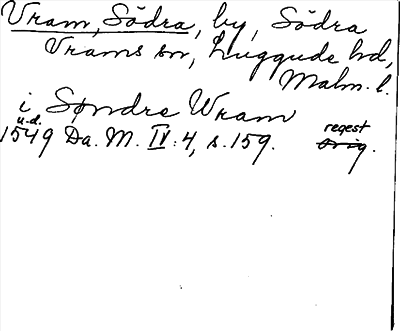 Vram, Södra, by, Södra
Vrams sn, Luggude hd,
Malm. l.
i Søndre Wram
u.d. regest
1549 Da. M. IV: 4, s. 159. orig.